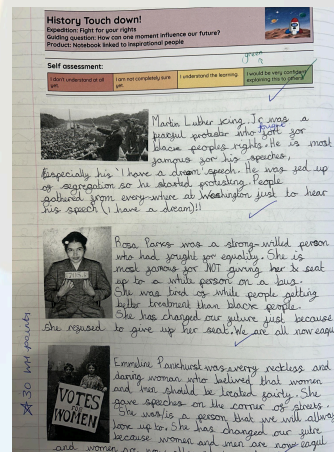 History Touch down!
Expedition: Fight for your rights
Guiding question: How can one moment influence our future?
Product: Notebook linked to inspirational people
green
Self assessment:
I don't understand at all yet.
I am not completely sure yet.
I understand the learning.
I would be very confident explaining this to others
Martin Luther King. Jr was a
peaful protestor who fight for
black peoples rights. He is most
famous for his speeches,
Especially his 'I have a dream' speech. He was fed up
of segregation so he started protesting. People
gathered from every-where at Washington just to hear
his speech (I have a dream)!!
Rosa Parks was a strong-willed person
who had fought for equality. She is
most famous for NOT giving her seat
up to a white person on a bus.
She was tired of white people getting
better treatment than black people.
She has changed our future just because
she refused to give up her seat. We are all now equal
30 WH points
7053
Emmeline Pankhurst was very reckless and
daring woman who belived that women
and men should be treated fairly. She
gave speeches on the corner of streets.
She was/is a person that we will always
look up to. She has changed our futre
because women and men are now equil
and women are now
VOTES
FOR
WOMEN